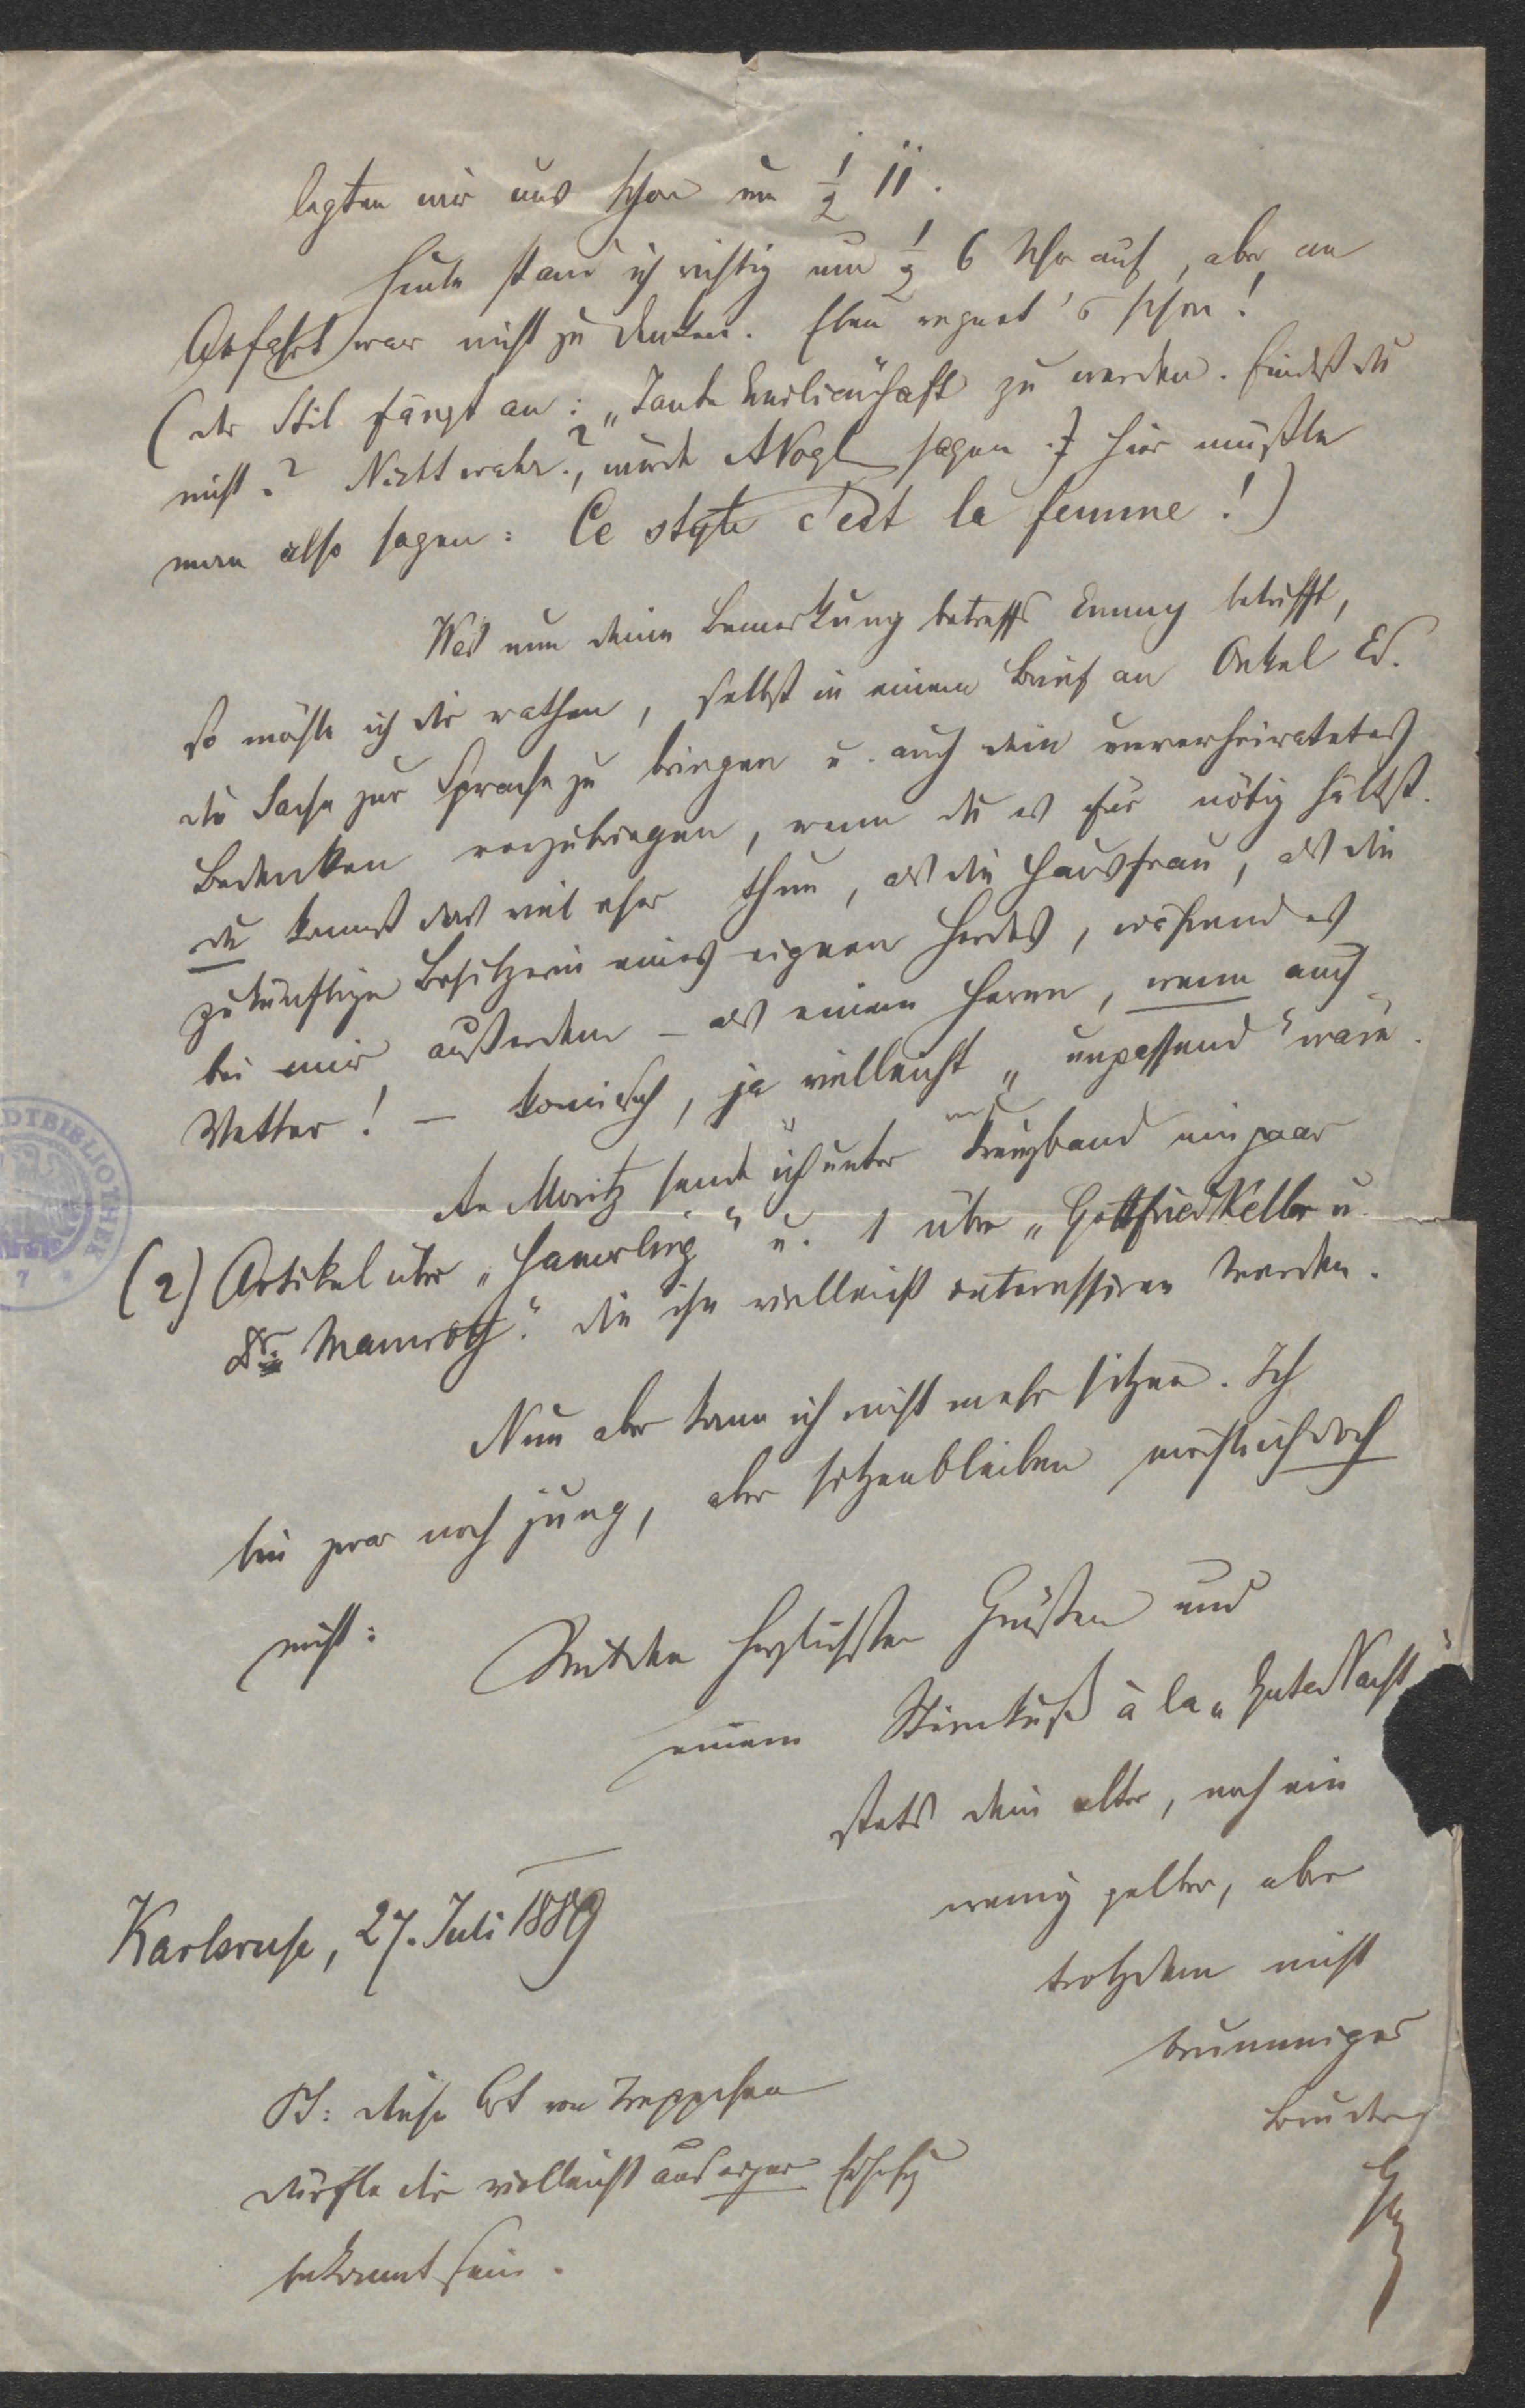 legten wir uns schon um 1/2 11.
Heute stand ich richtig um 1/2 6 Uhr auf, aber an
Abfahrt war nicht zu denken. Eben regnet's schon!
(der Stil fängt an: "Tante zu werden. Findest du
nicht? Nicht wahr?, würde AVogl sagen.) Hier müßte
man also sagen: Ce style c'est la femme!)
Was nun deine Bemerkung betreffs Emmy betrifft,
so möchte ich dir rathen, selbst in einem Brief an Onkel Ed.
die Sache zur Sprache zu bringen u. auch dein unverheiratetes
Bedenken vorzubringen, wenn du es für nötig hältst.
du kannst das viel eher thun, als die Hausfrau, als die
zukünftige Besitzerin eines eignen Herdes, während es
bei mir außerdem – als einem Herrn, wenn auch
Vetter! – komisch, ja vielleicht "unpassend" wäre.
An Moritz sende ich unter Kreuzband ein paar
(2) Artikel über "Hamerling" u. 1 über "Gottfried Keller u.
Dr. Mamroth." die ihn vielleicht interessiren werden.
Nun aber kann ich nicht mehr sitzen. Ich
bin zwar noch jung, aber sitzenbleiben möchte ich doch
nicht:
Mit den herzlichsten Grüßen und
einem Stirnkuß à la "Gute Nacht"
stets dein alter, noch ein
wenig gelber, aber
trotzdem nicht
brummiger
Bruder
Karlsruhe, 27. Juli 1889
PS: diese Art von Treppchen
dürfte dir vielleicht aus eigner
bekannt sein.
STADTBIBLIOTHEK
7